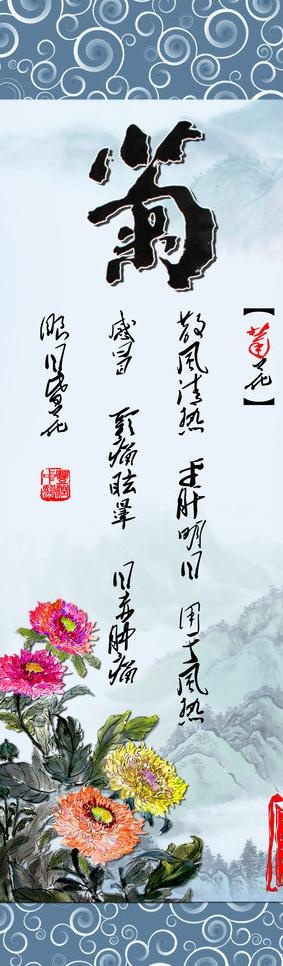 菊
【菊花】
散风清热 平肝明目 用于风热
感冒 头痛眩晕 目赤肿痛
眼目昏花